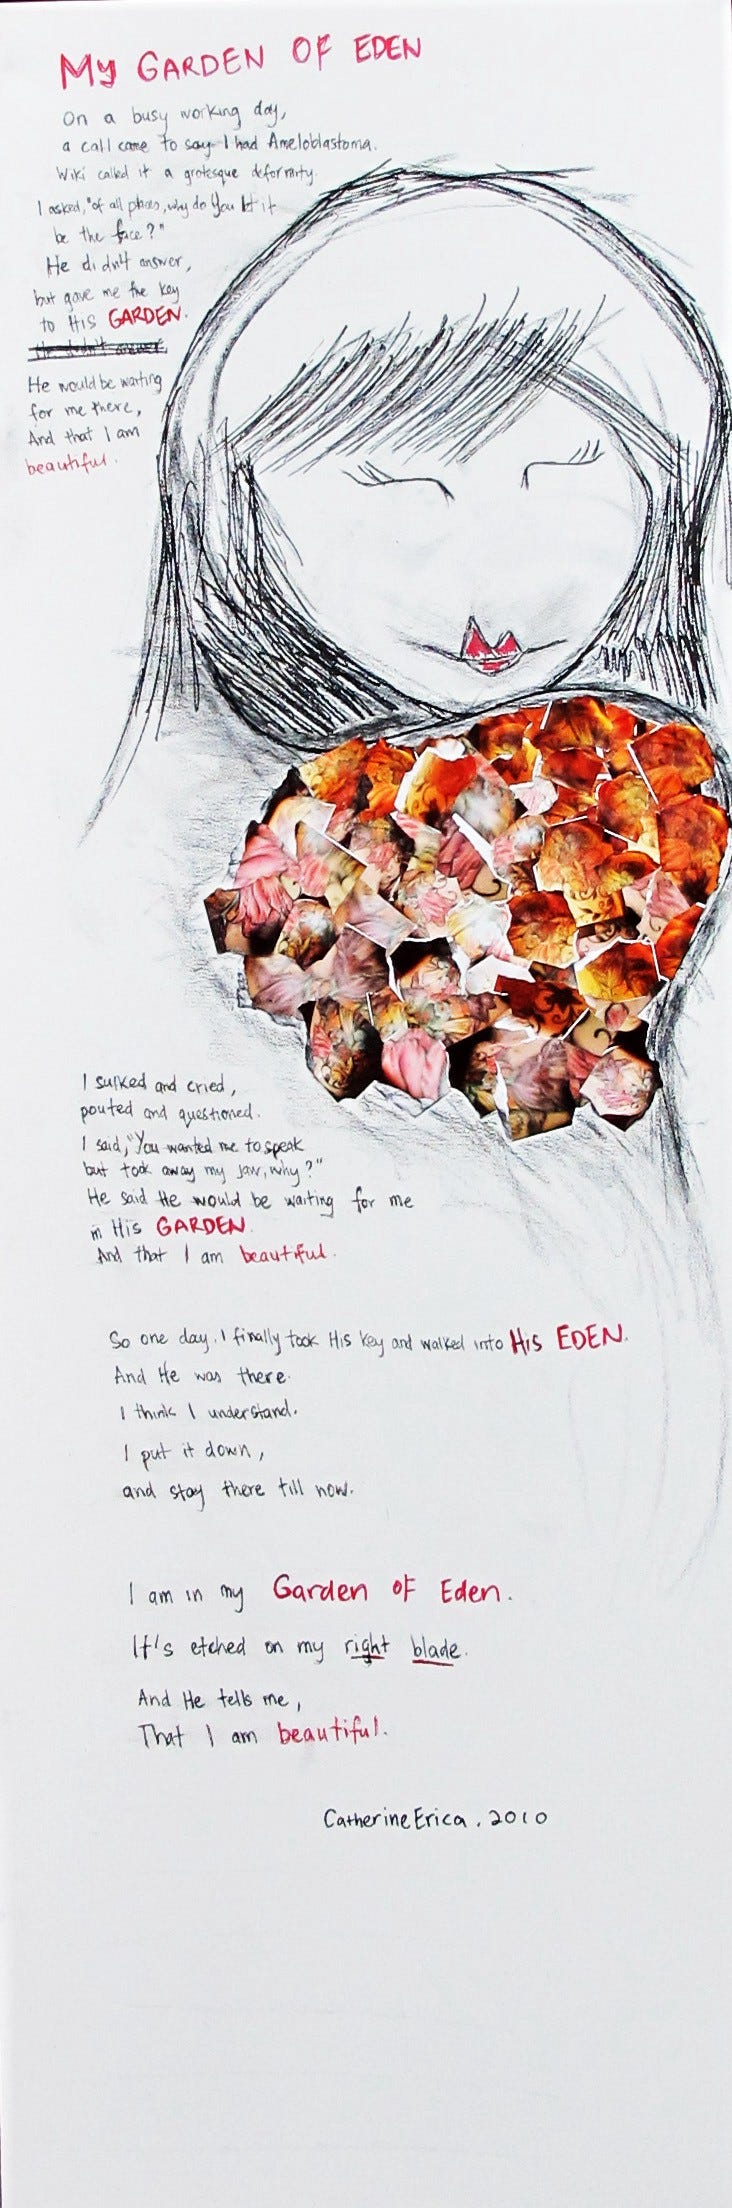 My GARDEN OF EDEN
On a busy working day,
a call came to say I had Ameloblastoma.
Wiki called it a grotesque deformity.
I asked, "of all places, why do You let it
be the face?"
He didn't answer,
but gave me the key
to His GARDEN.
He would be waiting
for me there,
And that I am
beautiful.
I sulked and cried,
pouted and questioned.
I said, "You wanted me to speak
but took away my jaw, why?"
He said He would be waiting for me
in His GARDEN.
And that I am beautiful.
So one day, I finally took His key and walked into His EDEN.
And He was there.
I think I understand.
I put it down,
and stay there till now.
I am in my Garden of Eden.
It's etched on my right blade.
And He tells me,
That I am beautiful.
CatherineErica. 2010